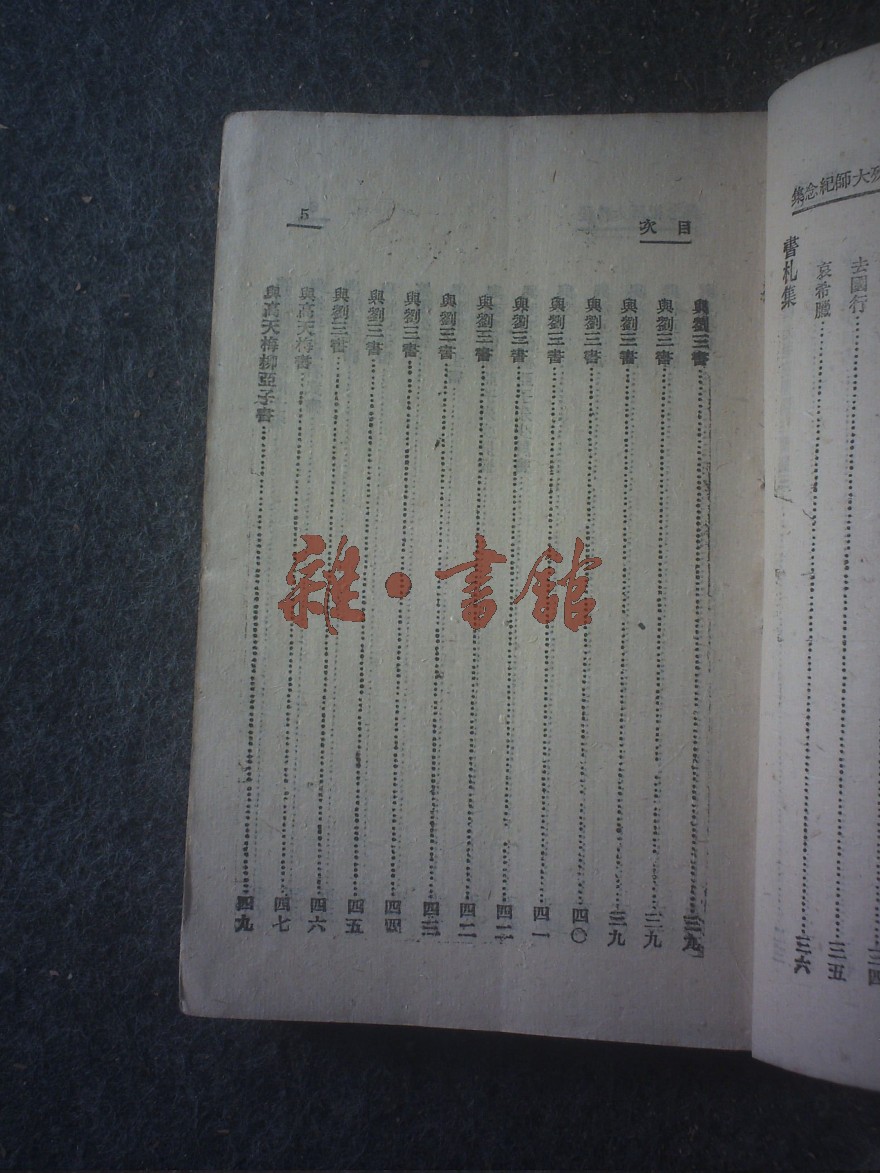 大師紀念集
去國行 三四
哀希臘 三五
書札集 三六
目次
5
與劉三書 三九
與劉三書 三九
與劉三書 三九
與劉三書 四〇
與劉三書 四一
與劉三書 四二
與劉三書 四二
與劉三書 四三
與劉三書 四四
與劉三書 四五
與劉三書 四六
與高天梅書 四七
與高天梅柳亞子書 四九
雜·書館